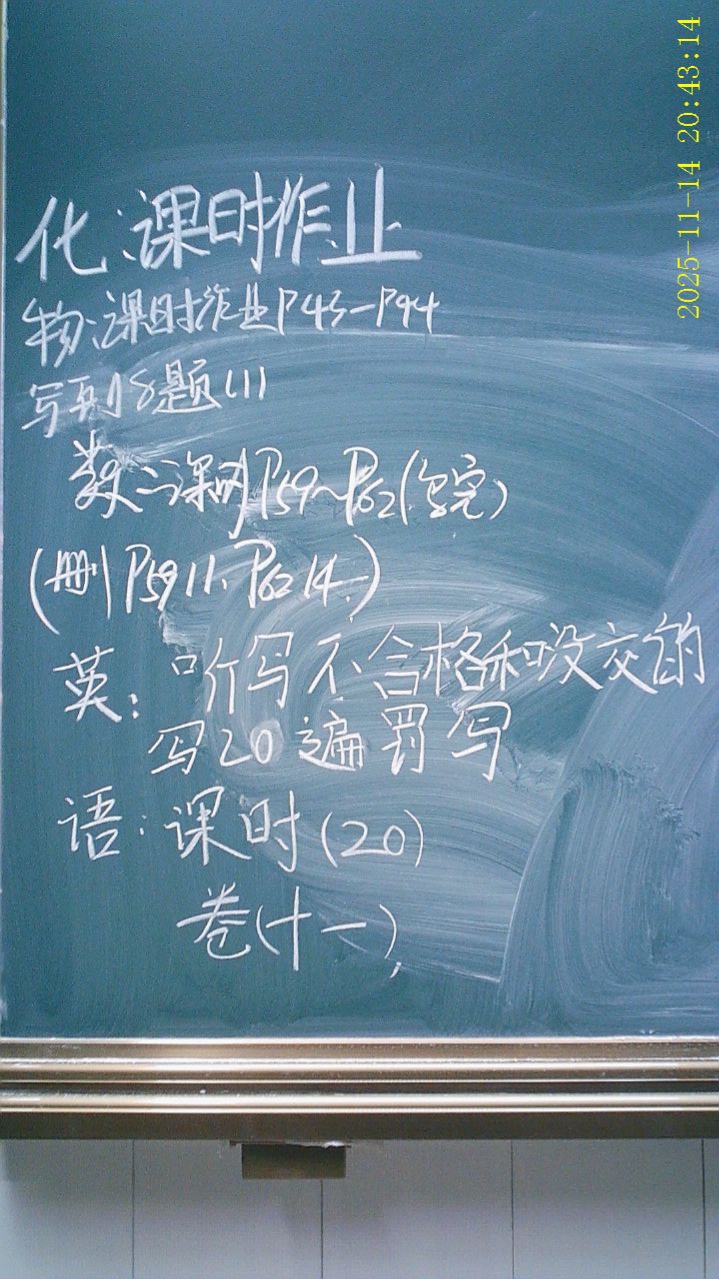 2025-11-14 20:43:14
化:课时作业
物:课时作业P43—P94
写到8题(1)
数:课时P59~P62(写完)
(删P59 11. P62 14.)
英:听写不合格和没交的
写20遍罚写
语:课时(20)
卷(十一)